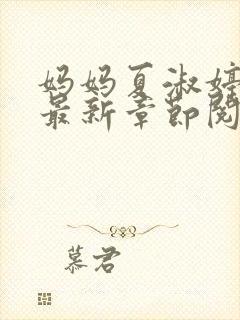 妈妈夏淑婷
最新章节阅
慕君